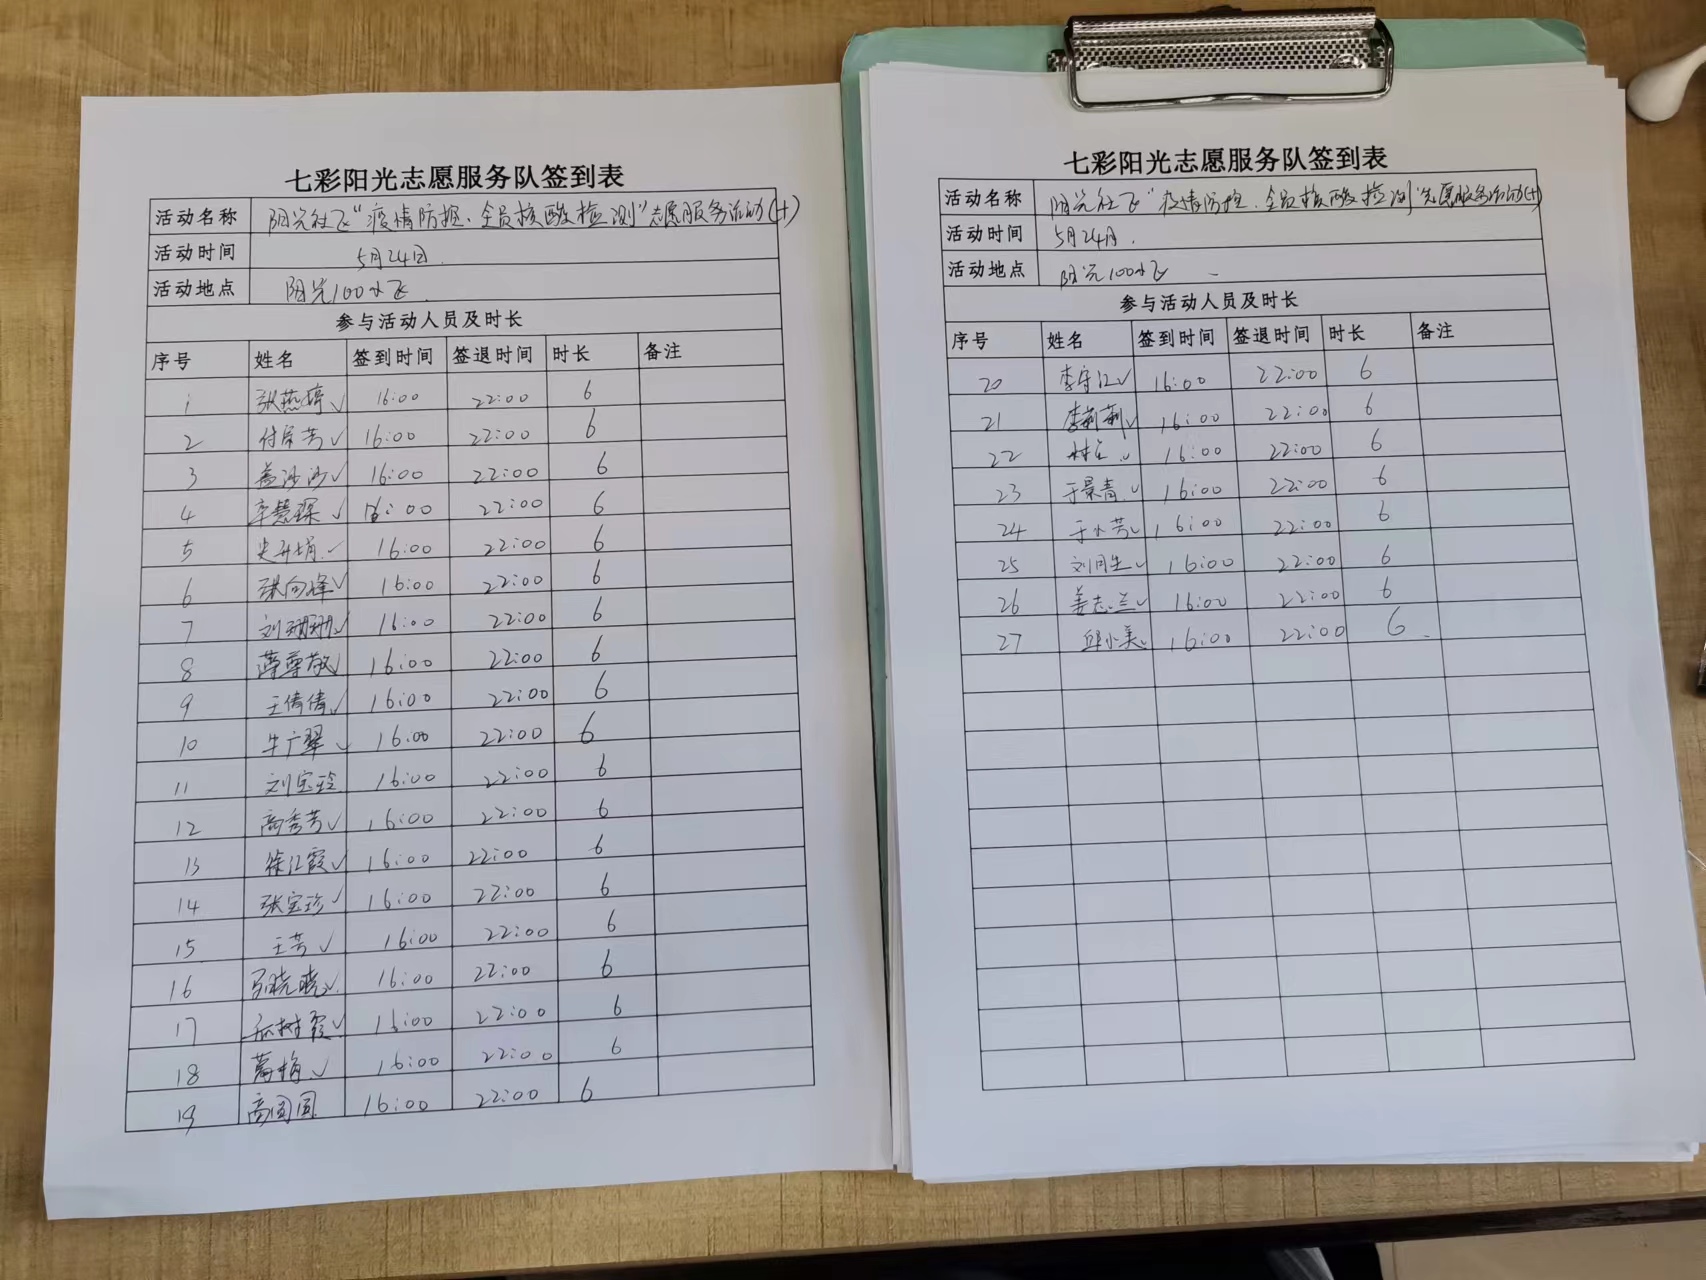 七彩阳光志愿服务队签到表
活动名称 阳光社区“疫情防控、全员核酸检测”志愿服务活动(十)
活动时间 5月24日.
活动地点 阳光100小区.
参与活动人员及时长
序号 姓名 签到时间 签退时间 时长 备注
1 张燕婷✓ 16:00 22:00 6
2 付 芳✓ 16:00 22:00 6
3 盖沙沙✓ 16:00 22:00 6
4 辛慧琛✓ 16:00 22:00 6
5 史 娟✓ 16:00 22:00 6
6 张向峰✓ 16:00 22:00 6
7 刘珊珊✓ 16:00 22:00 6
8 薛尊敬✓ 16:00 22:00 6
9 王倩倩✓ 16:00 22:00 6
10 牛广翠✓ 16:00 22:00 6
11 刘宝玲 16:00 22:00 6
12 高秀芳✓ 16:00 22:00 6
13 徐江霞✓ 16:00 22:00 6
14 张宝珍✓ 16:00 22:00 6
15 王芳✓ 16:00 22:00 6
16 晓晓✓ 16:00 22:00 6
17 树霞✓ 16:00 22:00 6
18 葛梅✓ 16:00 22:00 6
19 高园园 16:00 22:00 6
七彩阳光志愿服务队签到表
活动名称 阳光社区“疫情防控、全员核酸检测”志愿服务活动(十)
活动时间 5月24日.
活动地点 阳光100小区
参与活动人员及时长
序号 姓名 签到时间 签退时间 时长 备注
20 李守江✓ 16:00 22:00 6
21 李莉莉✓ 16:00 22:00 6
22 林 ✓ 16:00 22:00 6
23 于景青✓ 16:00 22:00 6
24 于小芳✓ 16:00 22:00 6
25 刘月生✓ 16:00 22:00 6
26 姜志兰✓ 16:00 22:00 6
27 邱小美✓ 16:00 22:00 6